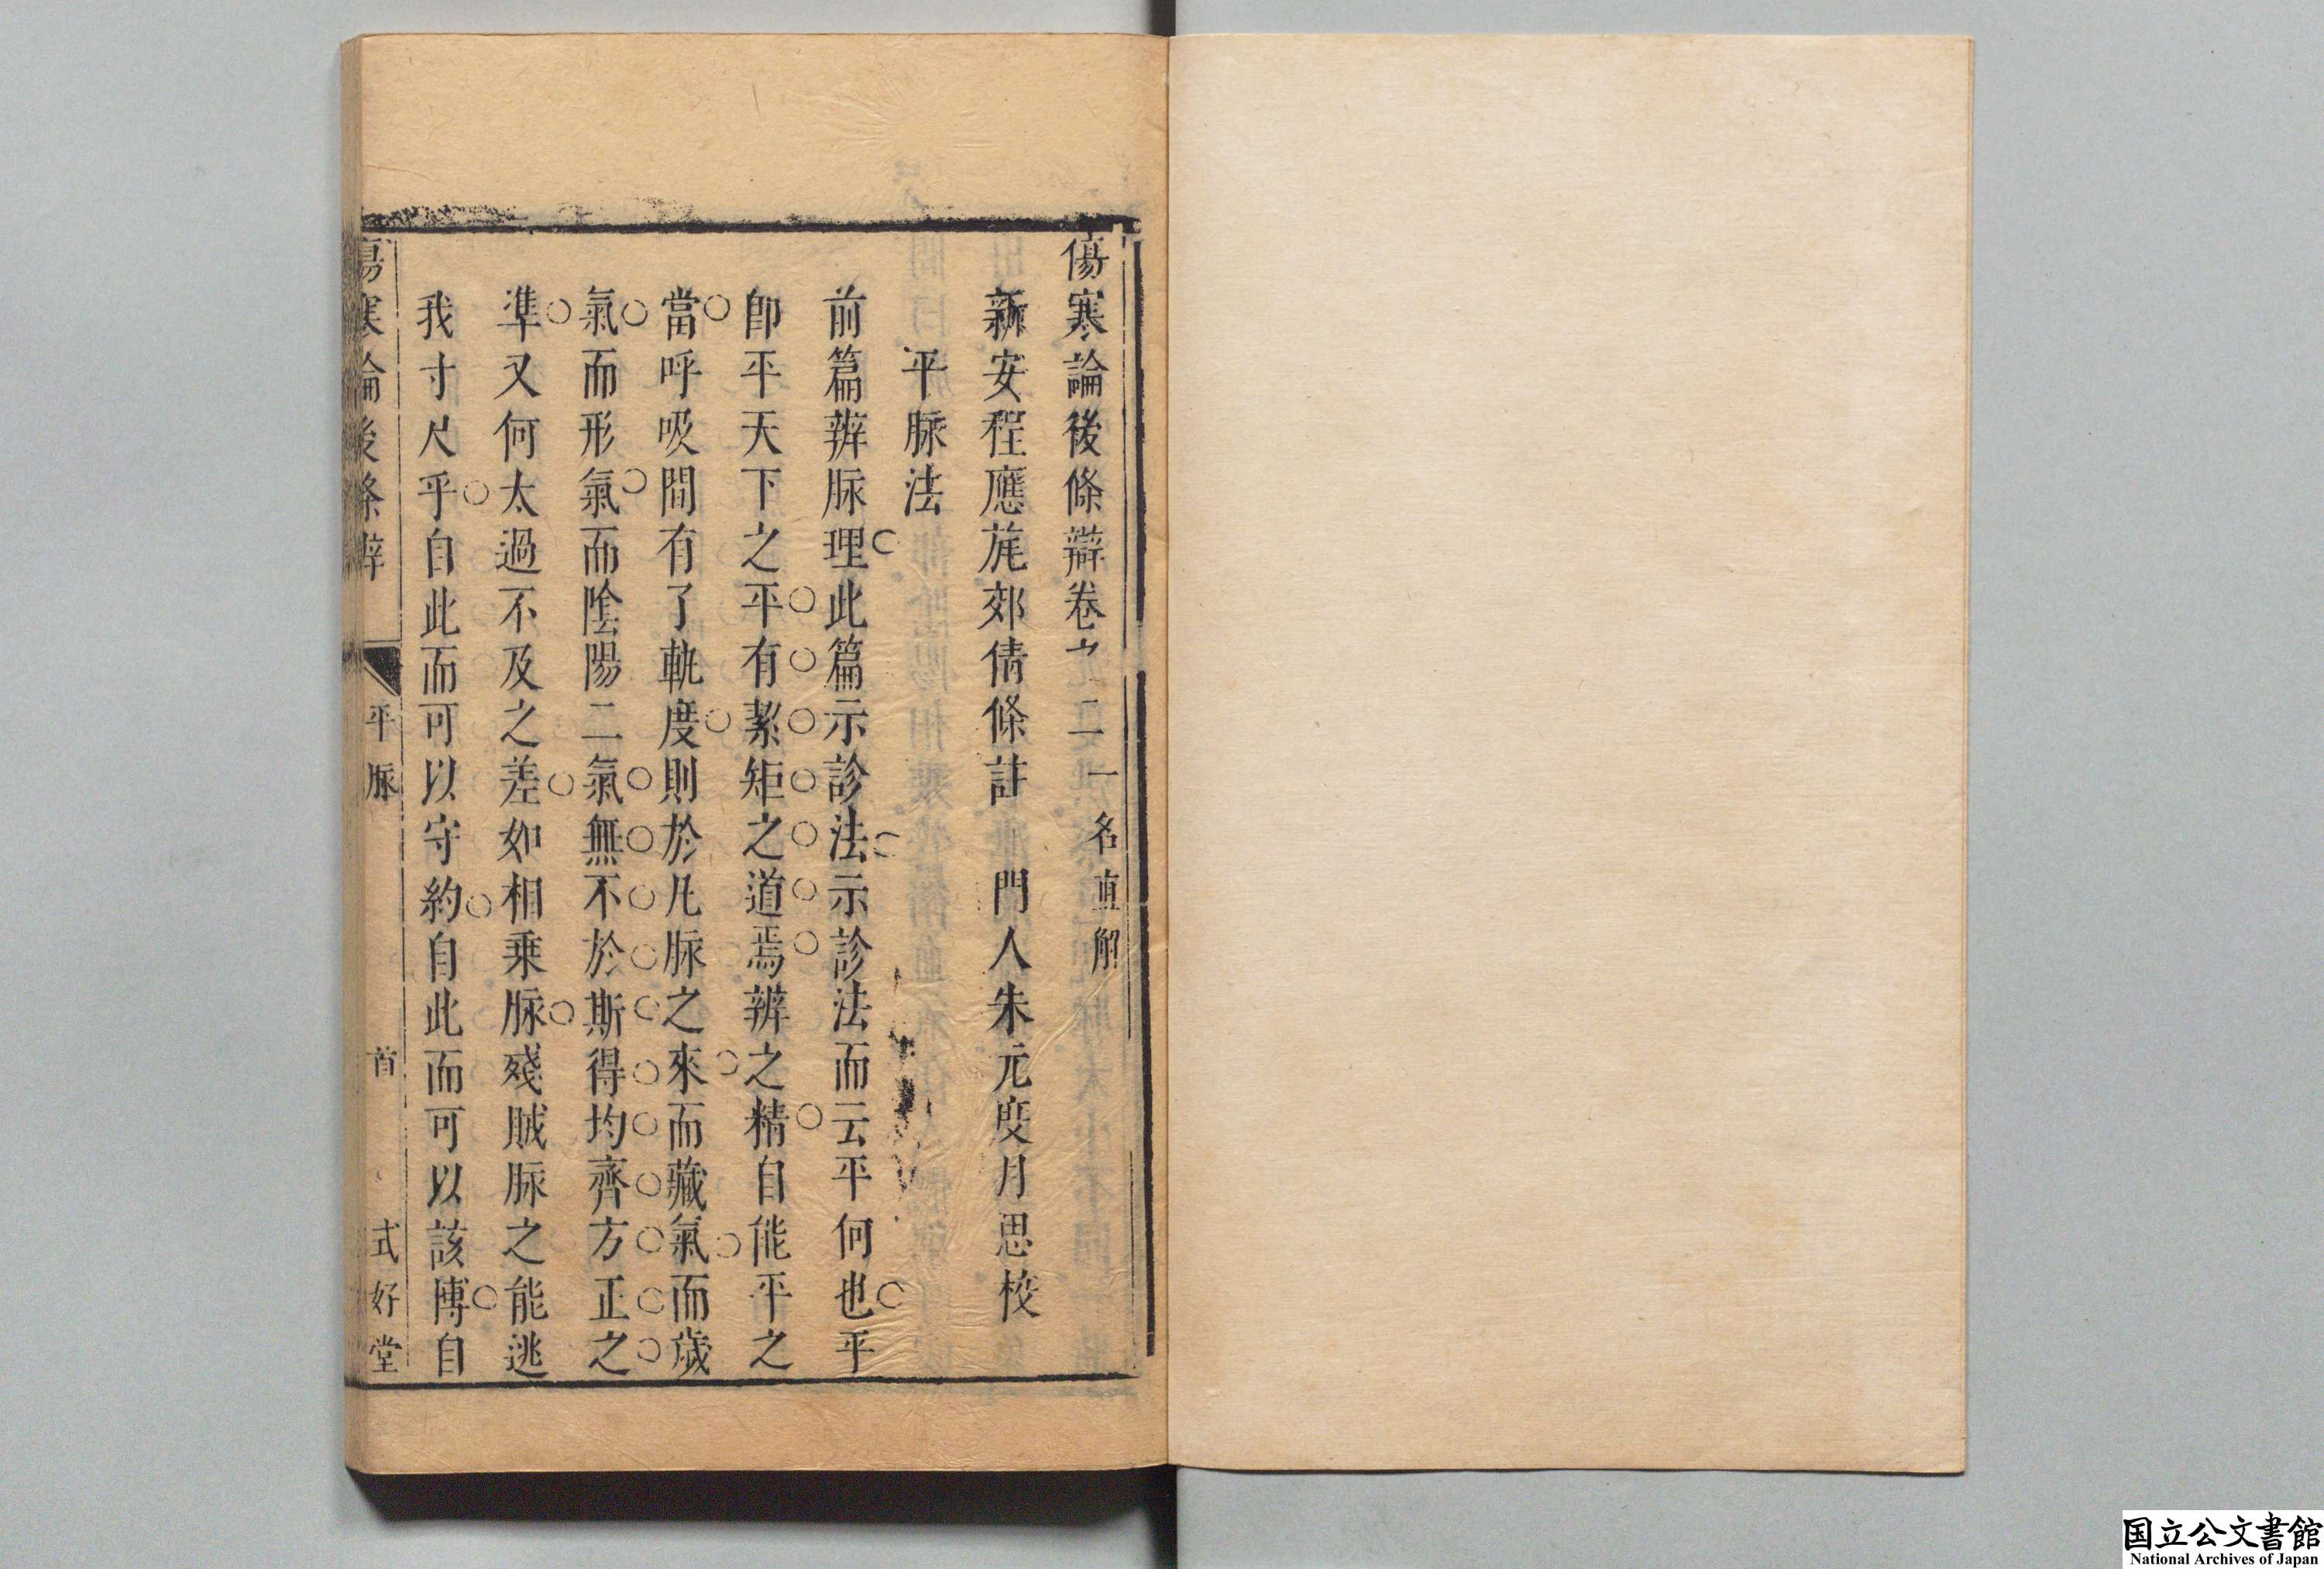 傷寒論後條辯卷之二 一名直解
新安程應旄郊倩條註 門人朱元度月思校
平脉法
前篇辨脉理此篇示診法示診法而云平何也平
卽平天下之平有絜矩之道焉辨之精自能平之
當呼吸間有了軌度則於凡脉之來而藏氣而歲
氣而形氣而陰陽二氣無不於斯得均齊方正之
準又何太過不及之差如相乗脉殘賊脉之能逃
我寸尺乎自此而可以守約自此而可以該博自
傷寒論後條辨 平脉 首 式好堂
国立公文書館
National Archives of Japan